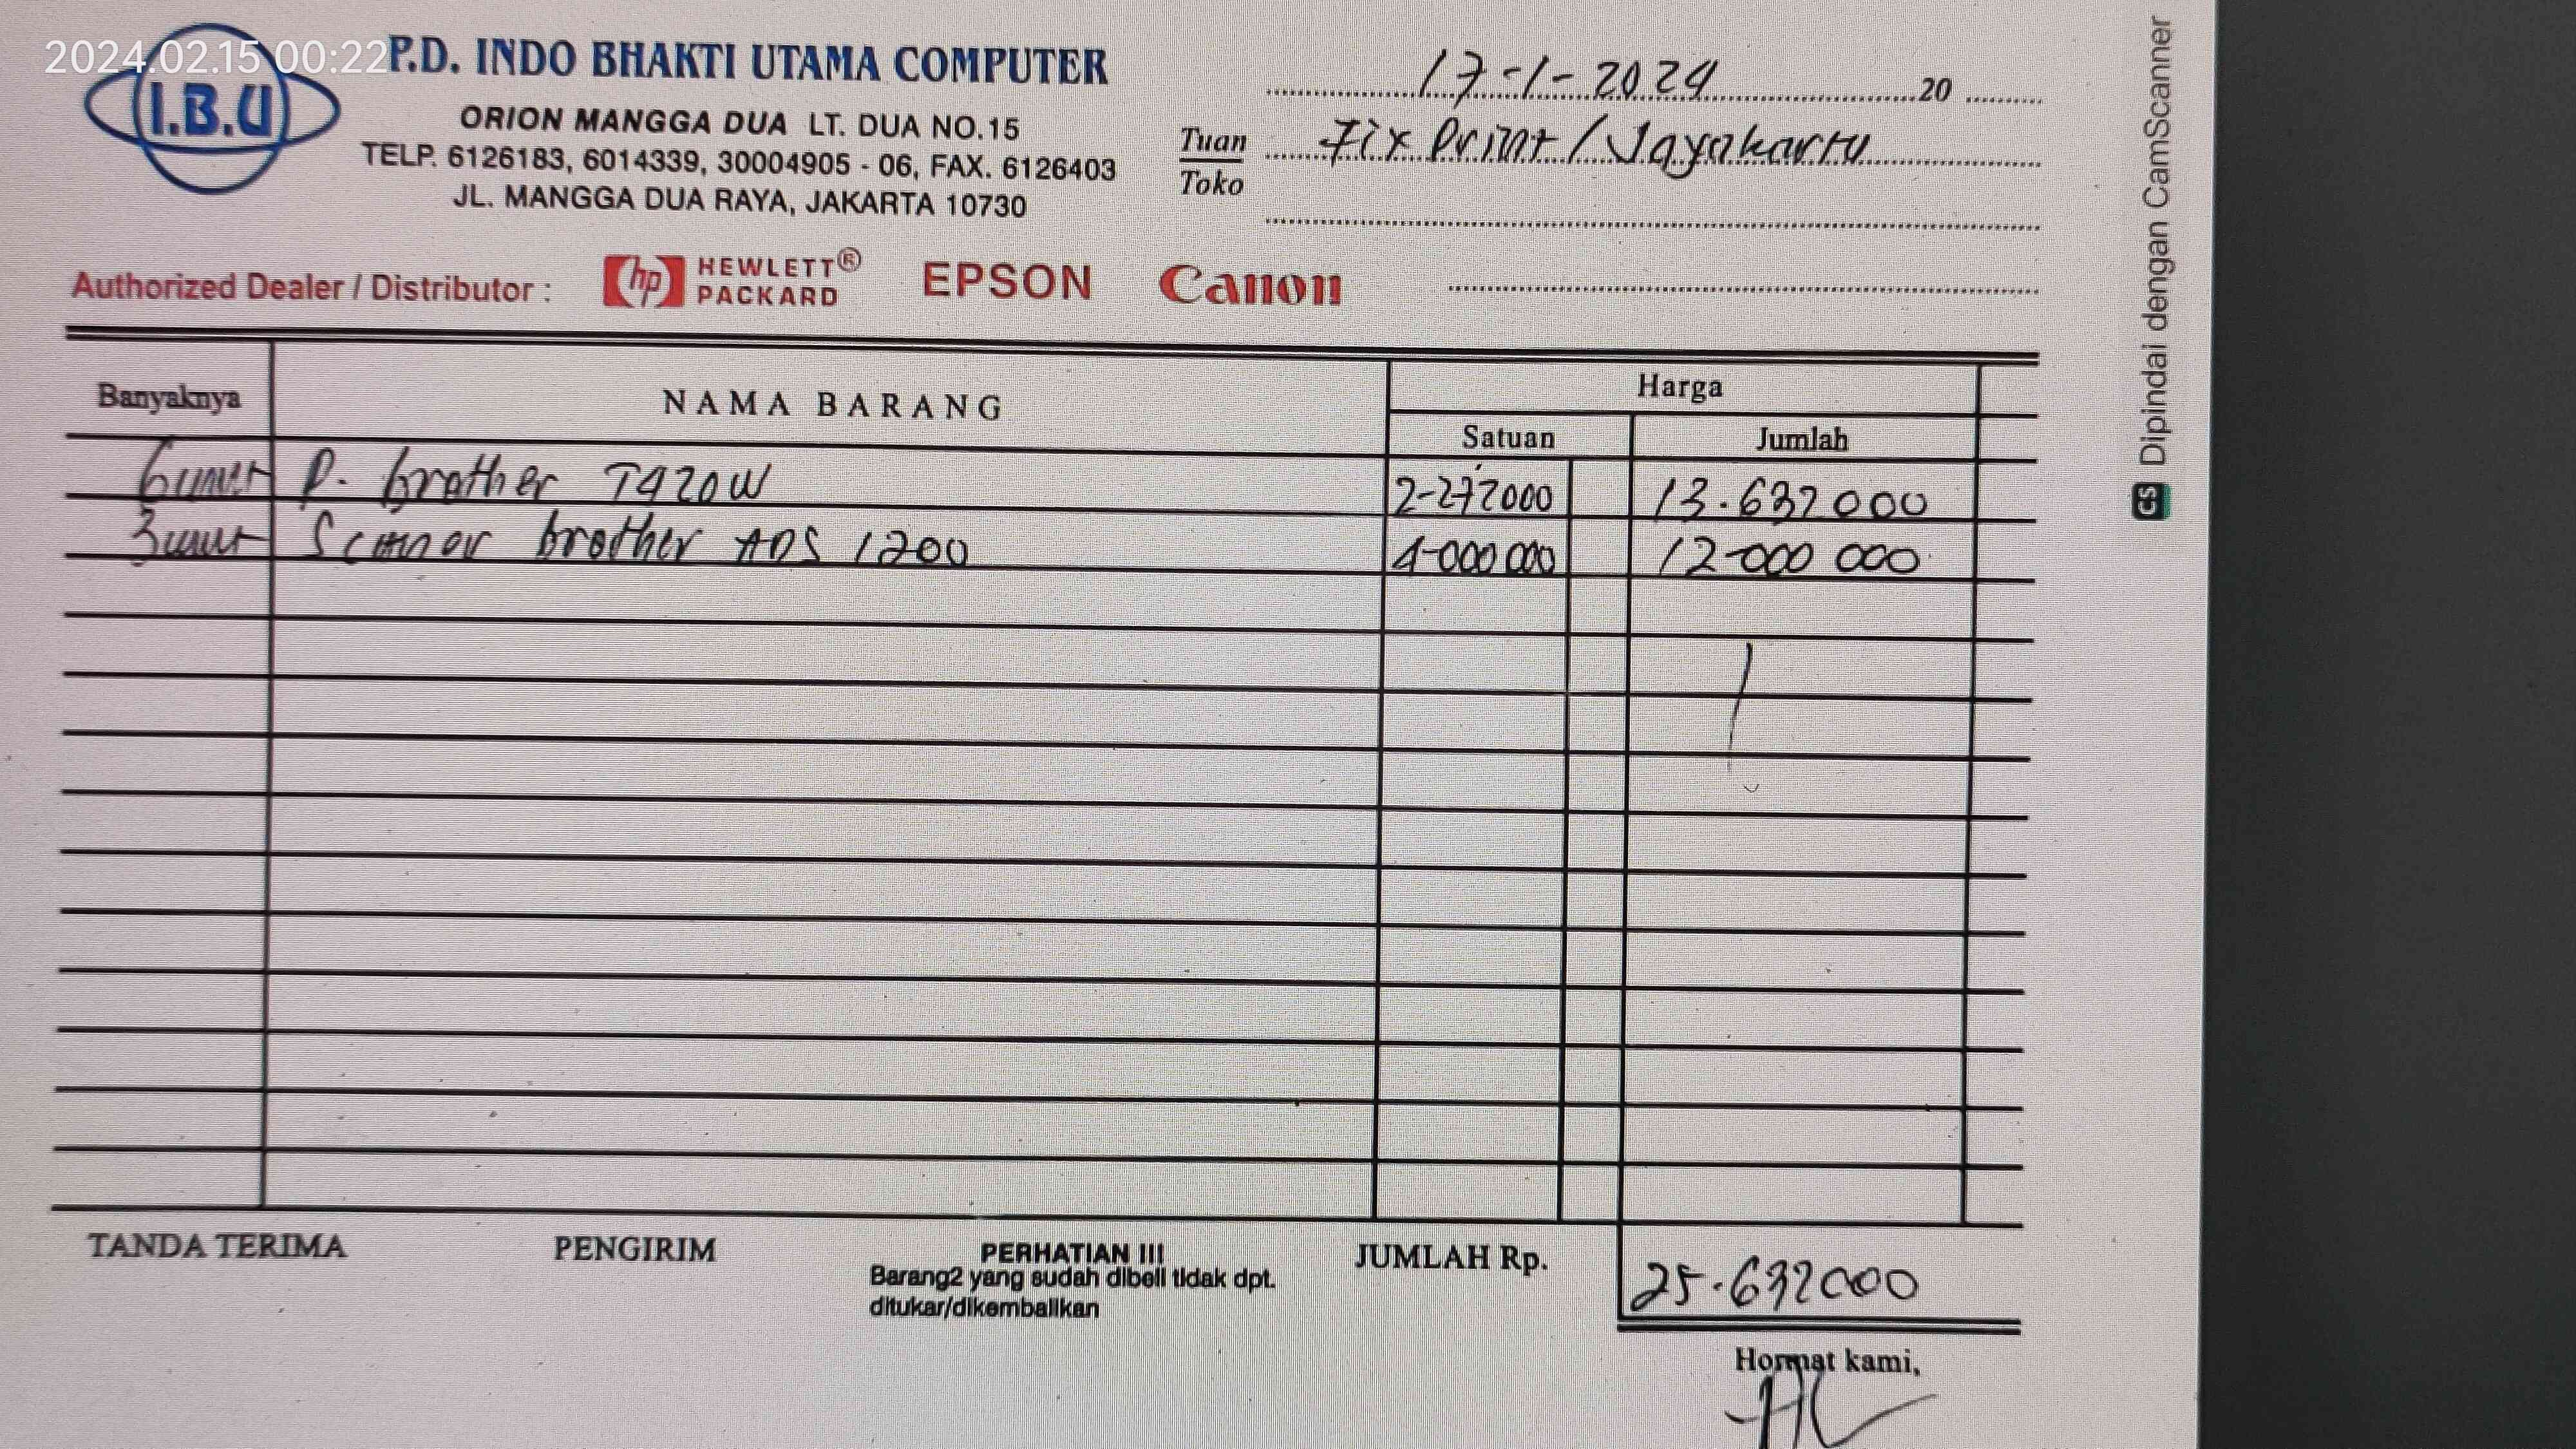 2024.02.15 00:22
I.B.U
P.D. INDO BHAKTI UTAMA COMPUTER
ORION MANGGA DUA LT. DUA NO.15
TELP. 6126183, 6014339, 30004905 - 06, FAX. 6126403
JL. MANGGA DUA RAYA, JAKARTA 10730
17-1-2024 20
Tuan
Toko
Fix Print / Jayakarta
Authorized Dealer / Distributor :
hp HEWLETT®
PACKARD
EPSON
Canon
Banyaknya NAMA BARANG Harga
Satuan Jumlah
6 unit P. brother T420W 2-272000 13.632000
3 unit Scanner brother ADS 1200 4-000 000 12-000 000
TANDA TERIMA PENGIRIM PERHATIAN !!! JUMLAH Rp. 25.632000
Barang2 yang sudah dibeli tidak dpt.
ditukar/dikembalikan
Hormat kami,
CS Dipindai dengan CamScanner